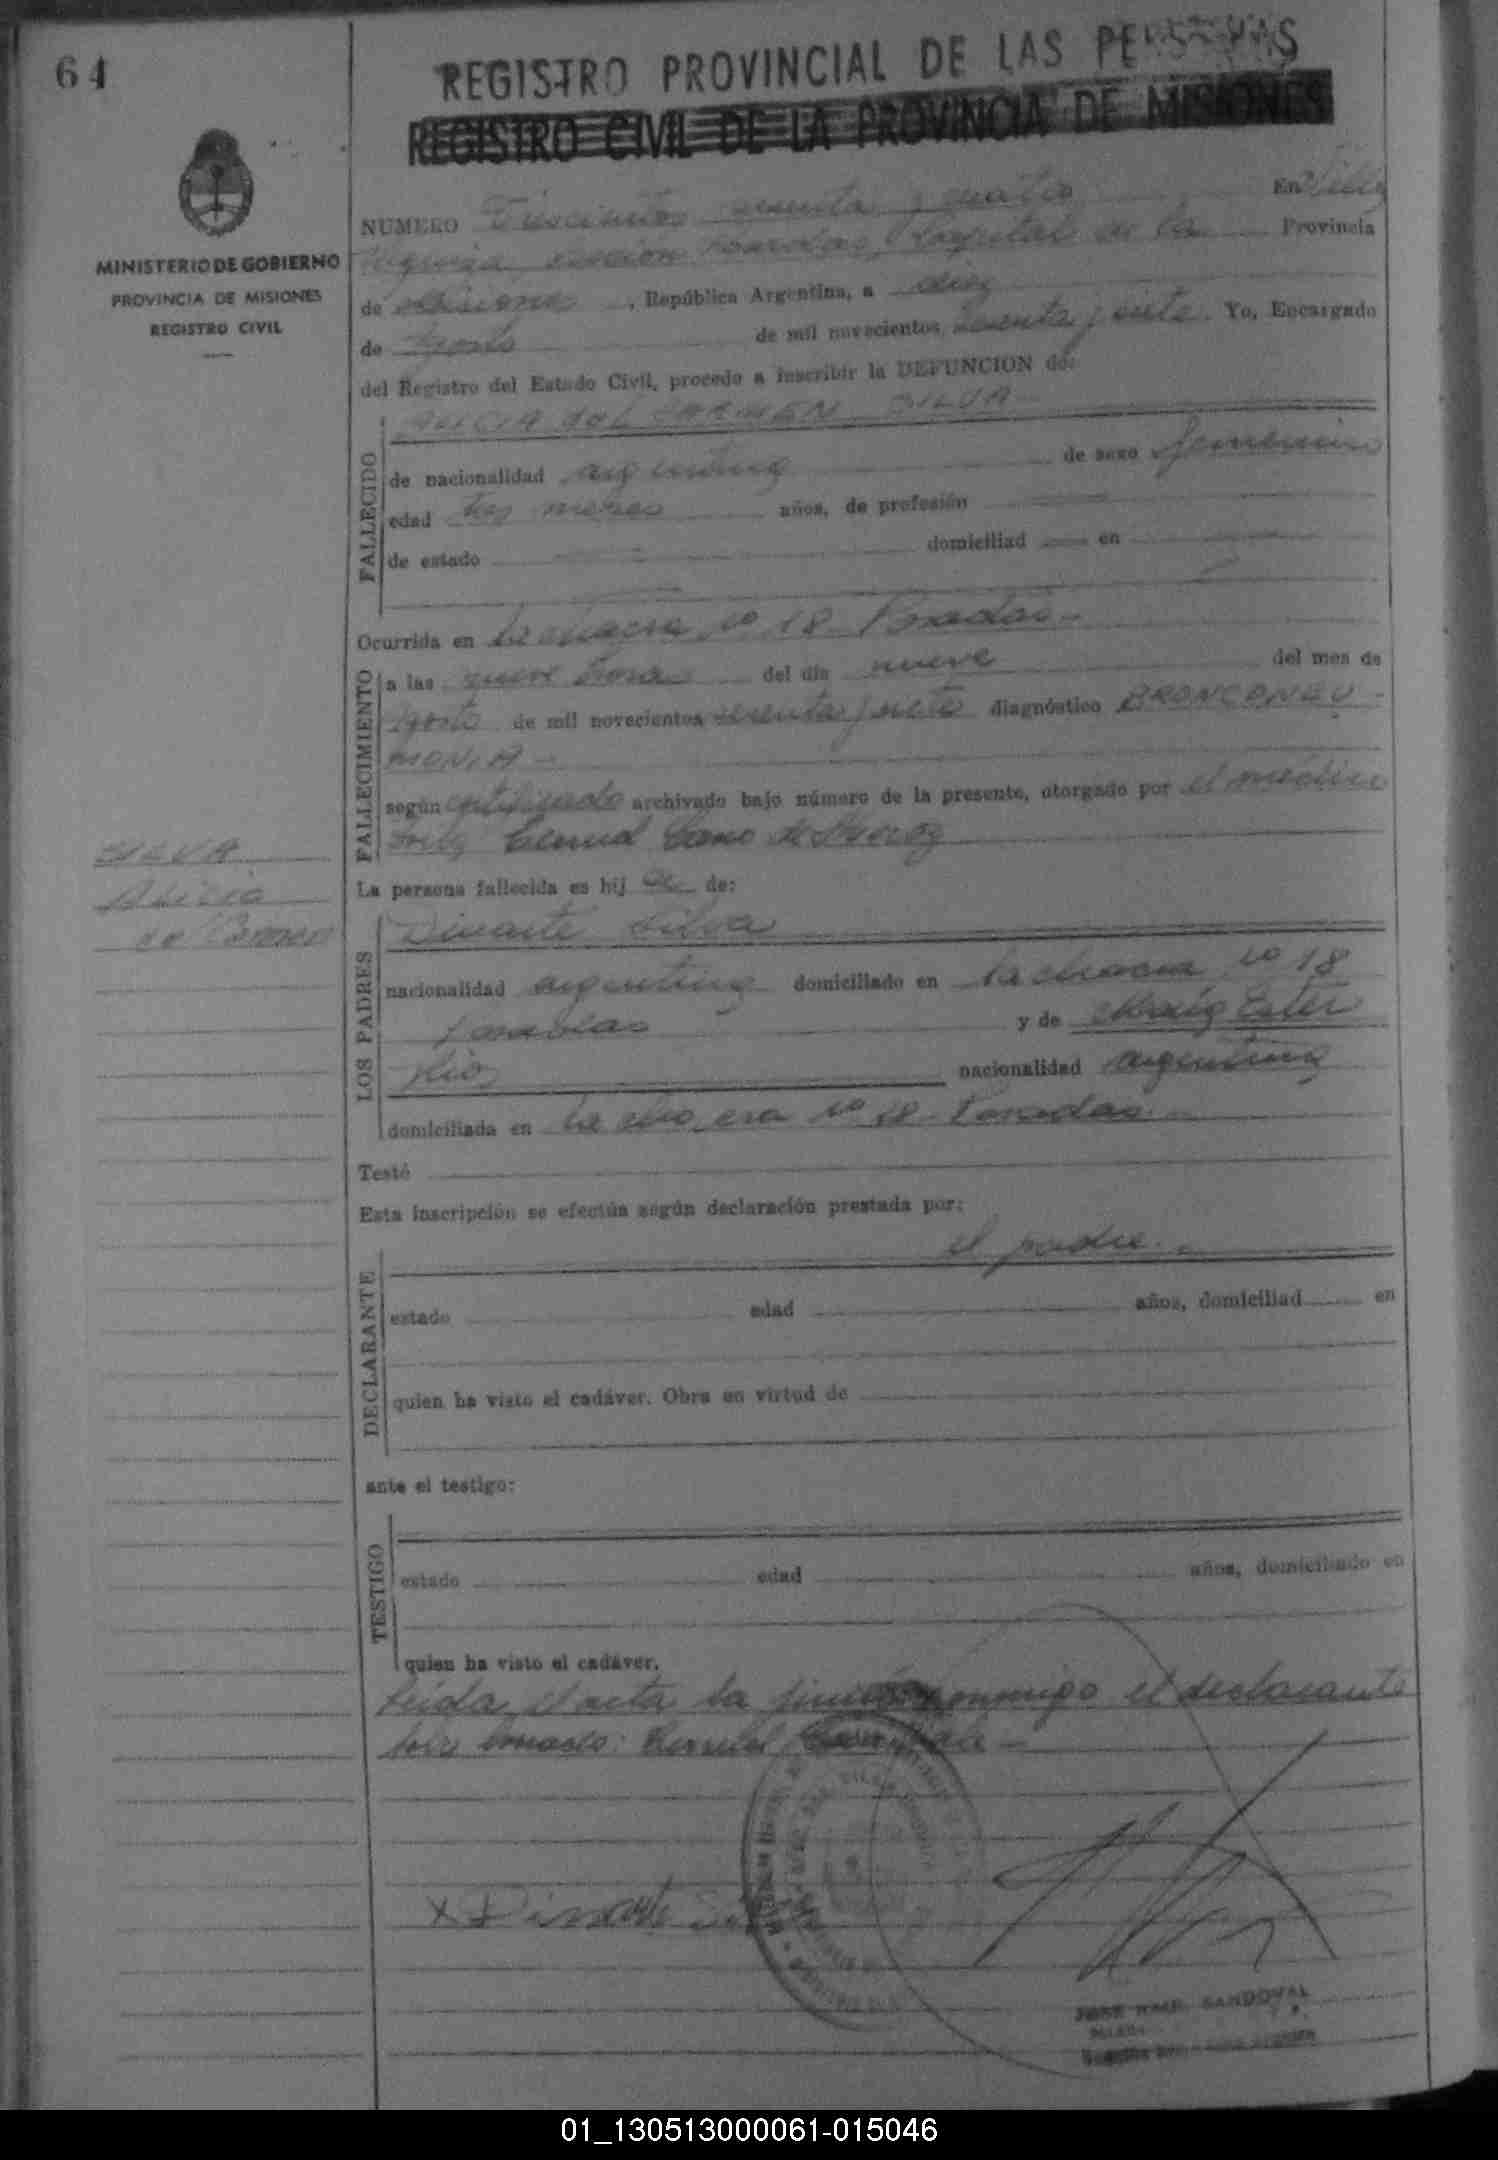 64
REGISTRO PROVINCIAL DE LAS PERSONAS
REGISTRO CIVIL DE LA PROVINCIA DE MISIONES
MINISTERIO DE GOBIERNO
PROVINCIA DE MISIONES
REGISTRO CIVIL
NUMERO Trescientos sesenta y cuatro En
Hospital de la Provincia
de Misiones, República Argentina, a diez
de Agosto de mil novecientos setenta y siete. Yo, Encargado
del Registro del Estado Civil, procedo a inscribir la DEFUNCION de:
FALLECIDO
ALICIA del CARMEN SILVA
de nacionalidad argentina de sexo femenino
edad tres meses años, de profesión
de estado domiciliad en
Ocurrida en La chacra nº 18 Posadas.-
FALLECIMIENTO
a las nueve horas del día nueve del mes de
Agosto de mil novecientos setenta y siete diagnóstico BRONCONEU-
MONIA.-
según certificado archivado bajo número de la presente, otorgado por el médico
La persona fallecida es hij a de:
SILVA
Alicia
del Carmen
LOS PADRES
Dinarte Silva
nacionalidad argentina domiciliado en La chacra nº 18
Posadas y de María Ester
Rios nacionalidad argentina
domiciliada en La chacra nº 18 Posadas.-
Testó
Esta inscripción se efectúa según declaración prestada por:
DECLARANTE
el padre.-
estado edad años, domiciliad en
quien ha visto el cadáver. Obra en virtud de
ante el testigo:
TESTIGO
estado edad años, domiciliado en
quien ha visto el cadáver.
Leída el acta la firma conmigo el declarante
X Dinarte Silva
SANDOVAL
01_130513000061-015046